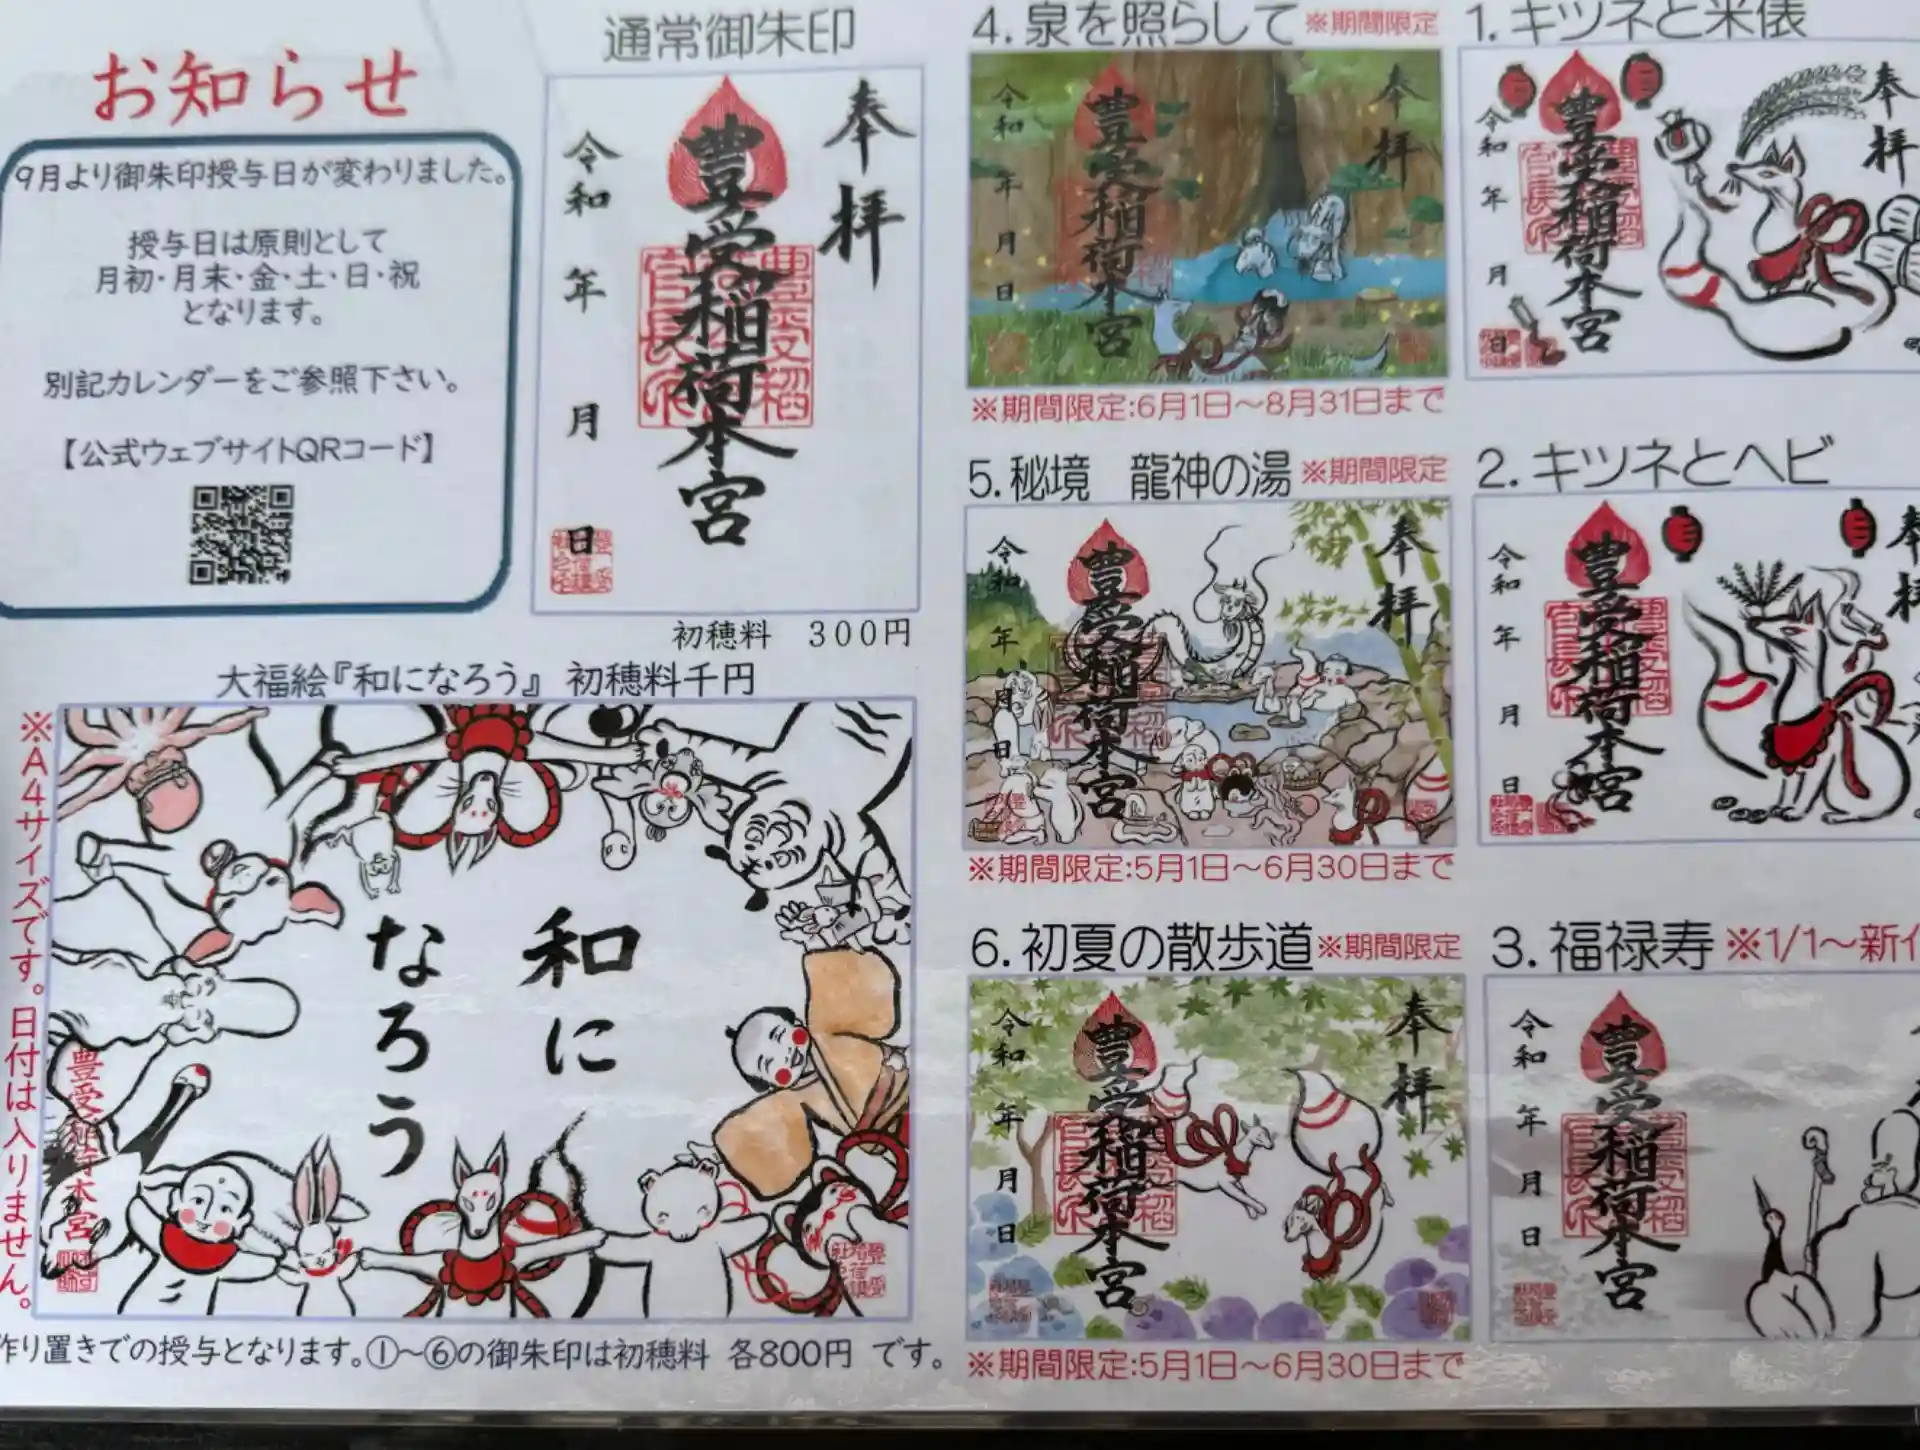 お知らせ
9月より御朱印授与日が変わりました。
授与日は原則として
月初・月末・金・土・日・祝
となります。
別記カレンダーをご参照下さい。
【公式ウェブサイトQRコード】
通常御朱印
奉拝
豊受稲荷本宮
令和 年 月 日
初穂料 300円
大福絵『和になろう』 初穂料千円
※A4サイズです。日付は入りません。
和に
なろう
豊受稲荷本宮
作り置きでの授与となります。①～⑥の御朱印は初穂料 各800円 です。
4.泉を照らして※期間限定
奉拝
豊受稲荷本宮
令和 年 月 日
※期間限定:6月1日～8月31日まで
5.秘境 龍神の湯※期間限定
奉拝
豊受稲荷本宮
令和 年 月 日
※期間限定:5月1日～6月30日まで
6.初夏の散歩道※期間限定
奉拝
豊受稲荷本宮
令和 年 月 日
※期間限定:5月1日～6月30日まで
1.キツネと米俵
奉拝
豊受稲荷本宮
令和 年 月 日
2.キツネとヘビ
奉拝
豊受稲荷本宮
令和 年 月 日
3.福禄寿 ※1/1～新
豊受稲荷本宮
令和 年 月 日